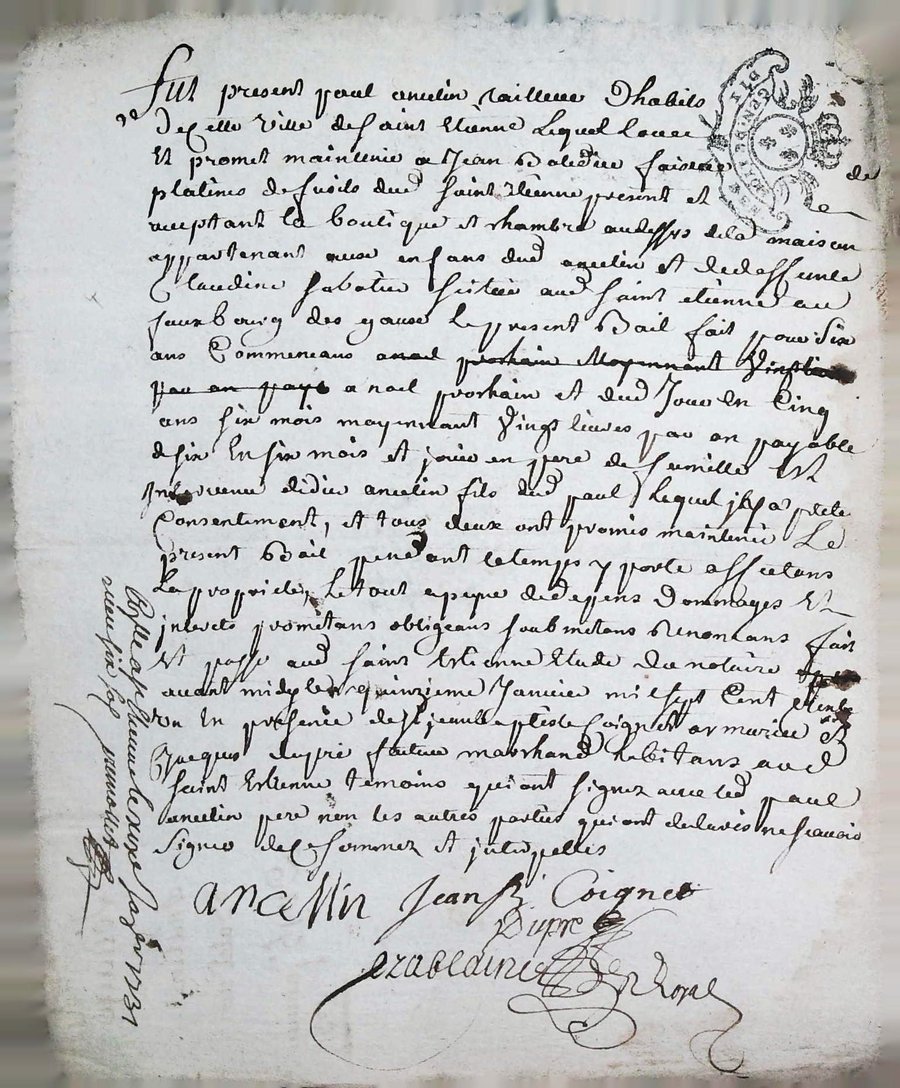 Fut present paul ancelin tailleur Dhabits
de Cette Ville de saint Etienne Lequel loue
Et promet maintenir a Jean faiseur de
platines de fusils dud saint Etienne present et
acceptant la boutique et chambre audessus de la maison
appartenant aux enfans dud ancelin et de deffunte
Claudine sabatier scituée aud saint etienne au
fauxbourg des gaux le present Bail fait pour six
ans Commencans a noel prochain Moyennant Vingt
par an paya a noel prochain et dud Jour En Cinq
ans six mois moyennant Vingt livres par an payable
de six En six mois et jouir en pere de famille Et
Intervenu didier ancelin fils dud paul Lequel
Consentiment, et tous deux ont promis maintenir Le
present Bail pendant le temps y porté affectans
La propriete, Le tout a peyne de depens Dommages Et
interets promettans obligeans soubmettans Renoncans fait
Et passé aud saint Estienne Etude du notaire
avant midy le quinzieme Janvier mil sept Cent trente
un En presence de Sr jean baptiste Coignet armurier Et
Jacques dupré marchand habitans aud
saint Estienne temoins qui ont signez avec led paul
ancelin pere non les autres parties qui ont declaré ne scavoir
signer de Ce sommez et interpellés
ancellin Jean B Coignet
Dupre
Royal
Collé a st Etienne le seize janvier 1731
receu six sols
GEN